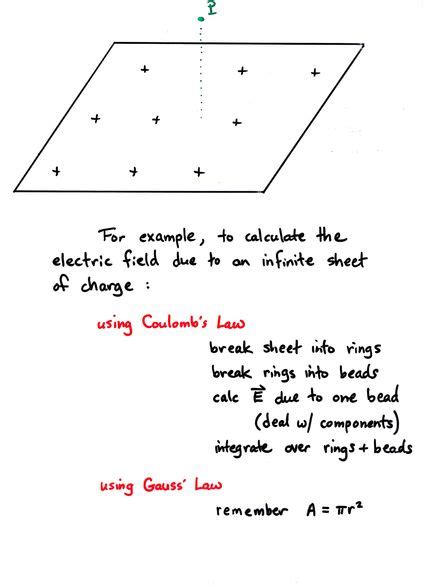 P
+ + +
+ + +
+ + +
For example, to calculate the
electric field due to an infinite sheet
of charge :
using Coulomb's Law
break sheet into rings
break rings into beads
calc E⃗ due to one bead
(deal w/ components)
integrate over rings + beads
using Gauss' Law
remember A = πr²